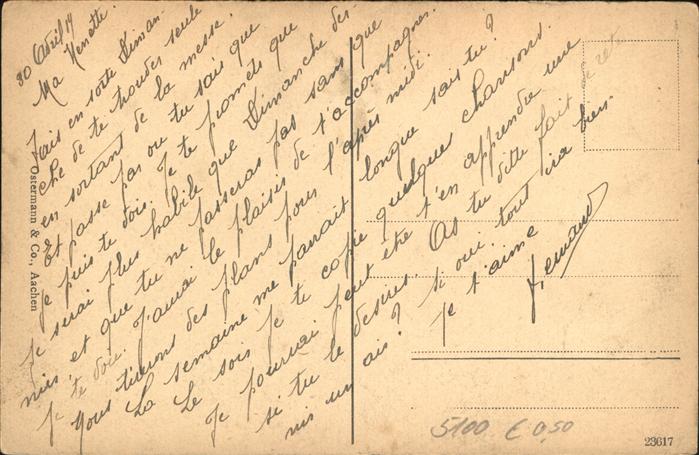 30 Avril 19
Ma Nénette.
Fais en sorte Diman-
che de te trouver seule
en sortant de la messe.
Et passe pas où tu sais que
je puis te voir. Je te promets que
je serai plus habile que Dimanche der-
nier, et que tu ne passeras pas sans que
je te voie. J'aurai le plaisir de t'accompagner.
Nous tirerons des plans pour l'après midi.
La semaine me paraît longue sais tu?
Le soir je te copie quelques chansons.
Je pourrai peut être t'en apprendre une
si tu le désires. As tu dître fait de ret
nir un air? Si oui tout ira bien.
Je t'aime
Fernand
Ostermann & Co., Aachen
5100 € 0,50
23617